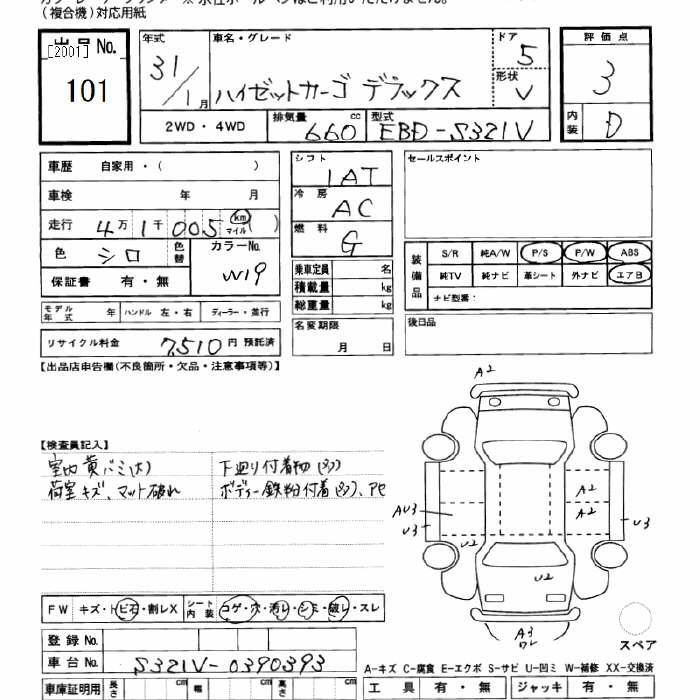 (複合機)対応用紙
出品No. [2001] 101
年式 31/1月
車名・グレード ハイゼットカーゴ デラックス
ドア 5
形状 V
評価点 3
内装 D
2WD・4WD
排気量 660 cc
型式 EBD-S321V
車歴 自家用・( )
車検 年 月
走行 4万1千005 km マイル( )
色 シロ 色替
カラーNo. W19
保証書 有・無
モデル年式 年 ハンドル 左・右 ディーラー・並行
リサイクル料金 7,510円 預託済
シフト IAT
冷房 AC
燃料 G
乗車定員 名
積載量 kg
総重量 kg
名変期限 月 日
セールスポイント
装備品 S/R 純A/W P/S P/W ABS
純TV 純ナビ 革シート 外ナビ エアB
ナビ型番:
後日品
【出品店申告欄(不良箇所・欠品・注意事項等)】
【検査員記入】
荷室キズ、マット破れ
下廻り付着物
ボディー鉄粉付着
FW キズ・トビ石・割レX
シート内装 コゲ・穴・汚レ・シミ・破レ・スレ
登録No.
車台No. S321V-0390393
車庫証明用 長さ cm 幅 cm 高さ cm
A2
A2
A2
AU3
U3
U2
U2
U3
A3
スペア
A-キズ C-腐食 E-エクボ S-サビ U-凹ミ W-補修 XX-交換済
工具 有・無 ジャッキ 有・無